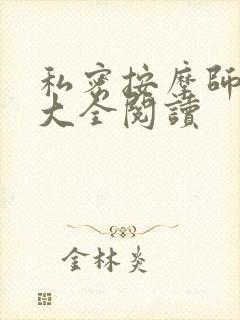 私密按摩師
大全閱讀
金林炎